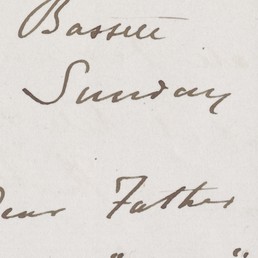 Bassett
Sunday
Dear Father
" "